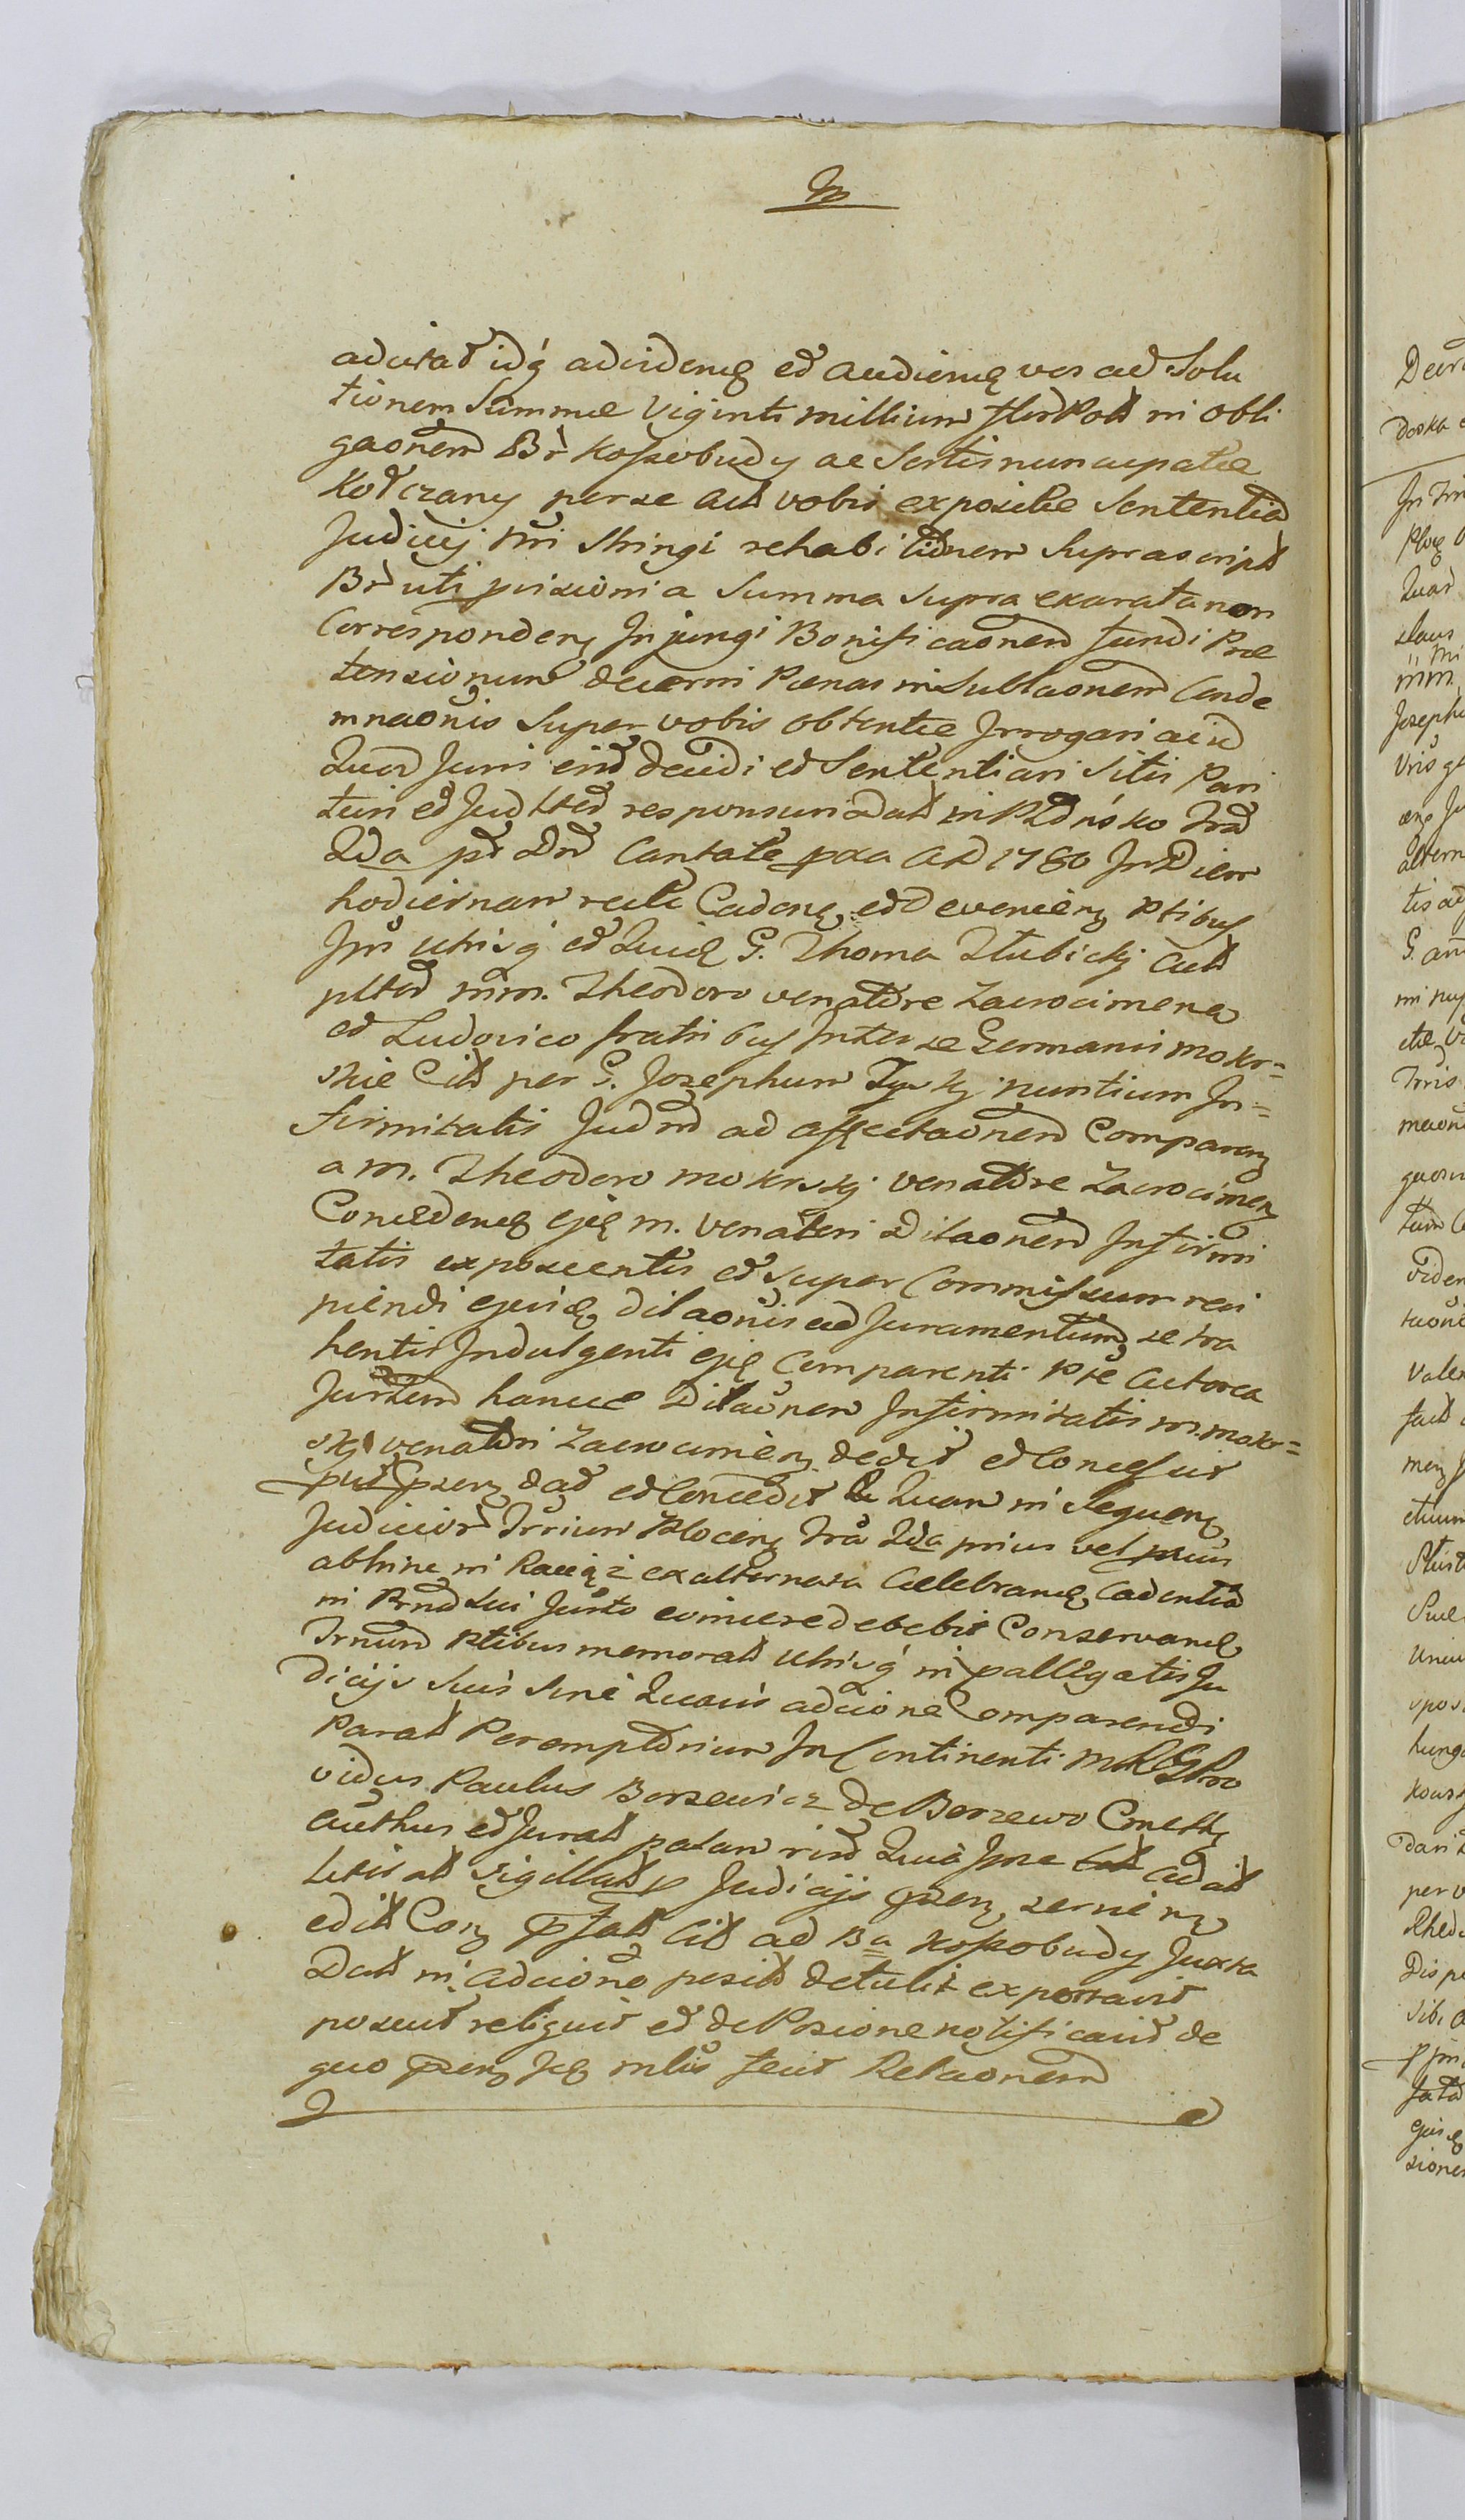 adcitat idq̃ ad videnđ et audienđ vos ad Solu
tionem Summæ Viginti millium flor Polt in obli
gaonem Br̃ Kossobudy ac Sortis nuncupatæ
Kołczany per se Act vobis expositæ Sententia
Judicij tri stringi rehabitionem Suprascript
Br̃ uti provisioni a Summa Supra exarata non
Corresponden Injungi Bonificaonem fundi Præ
tensionum decerni Pœnas in Sublaonem Conde
mnaonis Super vobis obtentæ Irrogari ac id
Quod Juri erit decidi et Sententiari Sitis Pari
turi et Judltr responsuri Dat in Płońsko Fria
2da pt Dnm Cantate pxa AD 1780 In Diem
hodiernam recte Cadenđ et Devenien Ptibus
Ipi utrisq̃ et Quid G. Thoma Dłubickj Act
pltr mm. Theodoro venatore Zacrocimen
et Ludovico fratribus Inter se Germanis mokr=
skie Cit per G. Josephum nuntium In=
firmitatis Judm ad affectaonem Comparen
a m. Theodoro mokrskj venatore Zacrocimen
Concedenđ ejđ m. Venatori Dilaonem Infirmi
tatis exposcentis et super Commissum reci
piendi ejusđ dilaonis ad Juramentum se tra
hentis Indulgenti ejđ Comparenti Pte Actorea
Jurtum hancce Dilaonem Infirmitatis m. mokr=
skj venatori Zacrocimen dedit et Concessit
putpsen dat et Concedit Quam in Sequenđ
Judicior Trrium Plocen Fria 2da prius vel prius
abhinc in Raciąż ex alternata Celebranđ Cadentia
in Prnd sui Justo evincere debebit Conservanđ
Trnum Ptibus memorat utrisq̃ in palligatis Ju
dicijs Suis Sine Quavis adcione Comparendi
Parat Peremptorium In Continenti Pro
vidus Paulus Borzewicz de Borzewo
authus et Jurat palam rind Quia Ipse Cit adcit
Litis at Sigillat p Judicijs psen servien
edit Con p fat Cit ad Ba Kossobudy Juxta
Dat in Adcione posit detulit exportavit
posuit reliquit et de Posione notificavit de
quo psen Jđ mlis fecit Relaonem